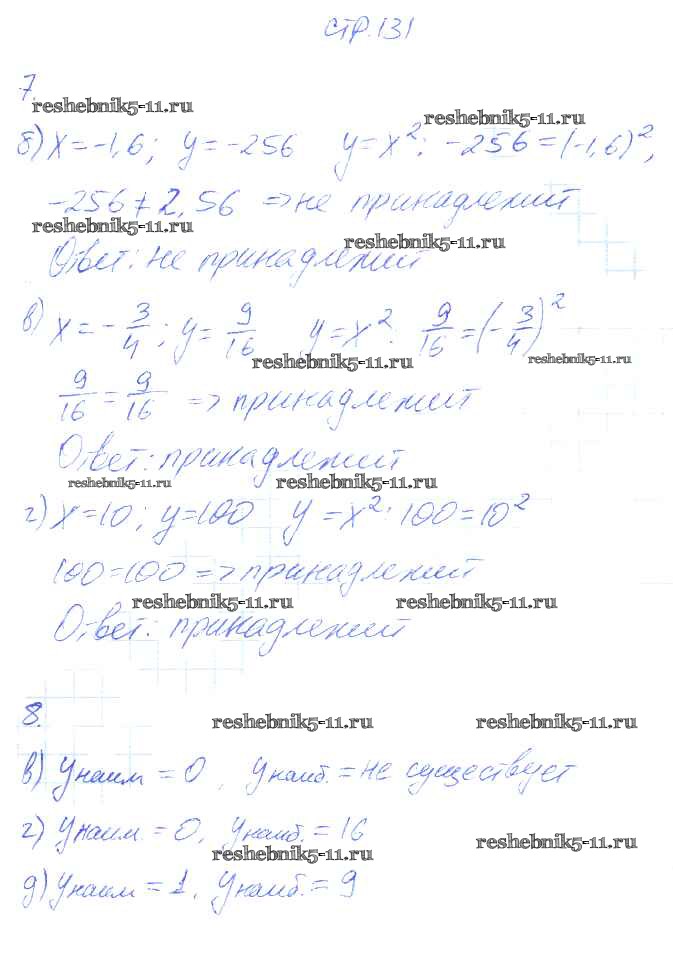 стр.131
7.
reshebnik5-11.ru
reshebnik5-11.ru
б) x = -1,6; y = -256 y = x²: -256 = (-1,6)²,
-256 ≠ 2,56 => не принадлежит
reshebnik5-11.ru
reshebnik5-11.ru
Ответ: не принадлежит
в) x = -3/4; y = 9/16 y = x²: 9/16 = (-3/4)²
reshebnik5-11.ru
reshebnik5-11.ru
9/16 = 9/16 => принадлежит
Ответ: принадлежит
reshebnik5-11.ru
reshebnik5-11.ru
г) x = 10; y = 100 y = x²: 100 = 10²
100 = 100 => принадлежит
reshebnik5-11.ru
reshebnik5-11.ru
Ответ: принадлежит
8.
reshebnik5-11.ru
reshebnik5-11.ru
в) yнаим = 0, yнаиб. = не существует
г) yнаим. = 0, yнаиб. = 16
reshebnik5-11.ru
reshebnik5-11.ru
д) yнаим = 1, yнаиб. = 9